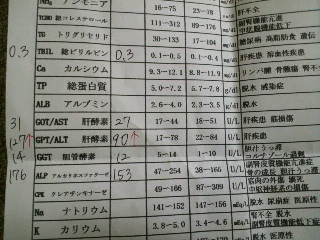 NH₃ アンモニア 16〜75 23〜78 肝不全
TCHO 総コレステロール 111〜312 89〜176 副腎機能亢進
TG トリグリセリド 30〜133 17〜104 糖尿病 高脂肪食 遺伝
0.3 TBIL 総ビリルビン 0.3 0.1〜0.5 0.1〜0.4 肝疾患 溶血性疾患
Ca カルシウム 9.3〜12.1 8.8〜11.9 リンパ腫 骨髄腫 腎不全
TP 総蛋白質 5.0〜7.2 5.7〜7.8 g/dl 脱水 感染症
ALB アルブミン 2.6〜4.0 2.3〜3.5 g/dl 脱水
31 GOT/AST 肝酵素 27 17〜44 18〜51 U/L 肝疾患 筋損傷
127↑ GPT/ALT 肝酵素 90↑ 17〜78 22〜84 U/L 肝疾患
14 GGT 胆管酵素 12 5〜14 1〜10 U/L 胆汁うっ滞
176 ALP アルカリホスファターゼ 153 47〜254 38〜165 U/L 副腎皮質機能亢進症 骨の成長 胆汁うっ滞
CPK クレアチンキナーゼ 49〜166 87〜309 U/L 筋肉の外傷 壊死 中枢神経系の損傷
Na ナトリウム 141〜152 147〜156 脱水 尿崩症 医原性
K カリウム 3.8〜5.0 3.4〜4.6 腎不全 脱水